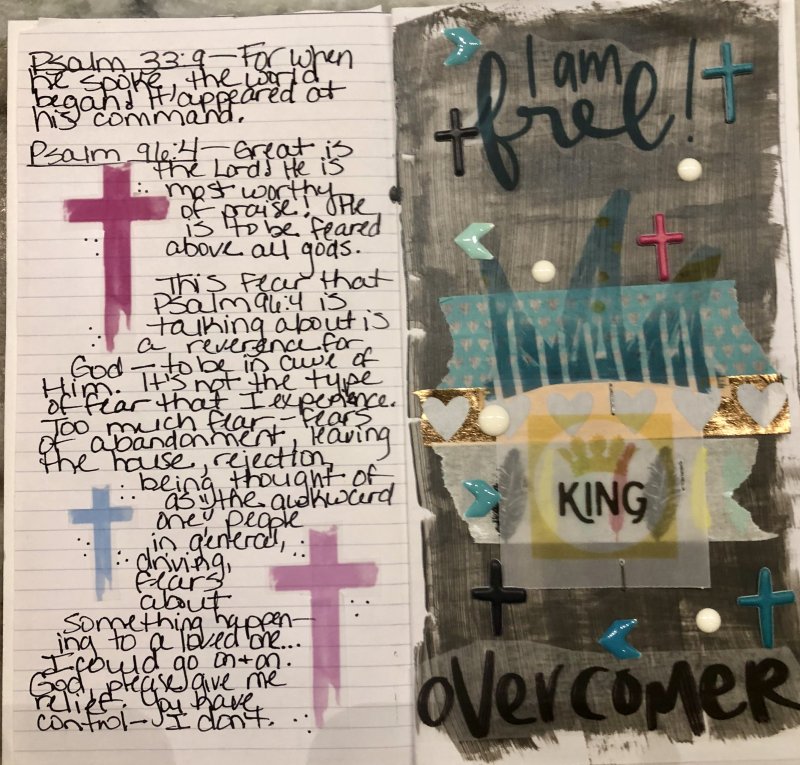 Psalm 33:9 — For when
he spoke, the world
began! It appeared at
his command.
Psalm 96:4 — Great is
the Lord! He is
most worthy
of praise! He
is to be feared
above all gods.
This fear that
Psalm 96:4 is
talking about is
a reverence for
God — to be in awe of
Him. It's not the type
of fear that I experience.
Too much fear — fears
of abandonment, leaving
the house, rejection,
being thought of
as "the awkward
one", people
in general,
driving,
fears
about
something happen-
ing to a loved one...
I could go on + on.
God, please give me
relief. You have
control — I don't.
I am
free!
KING
overcomer